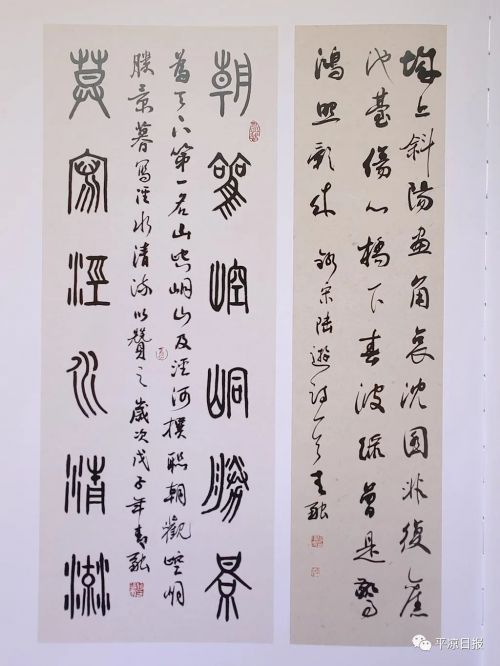 城上斜陽畫角哀沈園非復舊
池臺傷心橋下春波綠曾是驚
鴻照影來 錄宋陸遊詩一首 青融
朝觀崆峒勝景
為天下第一名山崆峒山及涇河撰聯朝觀崆峒
勝景暮寫涇水清流以贊之歲次戊子年青融
暮寫涇水清流
平凉日报